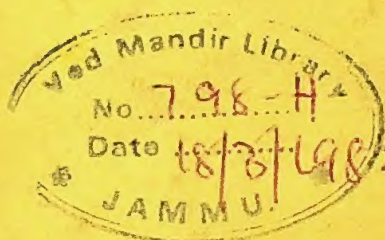 Ved Mandir Library
No. 798-H
Date 18/8/198
JAMMU.